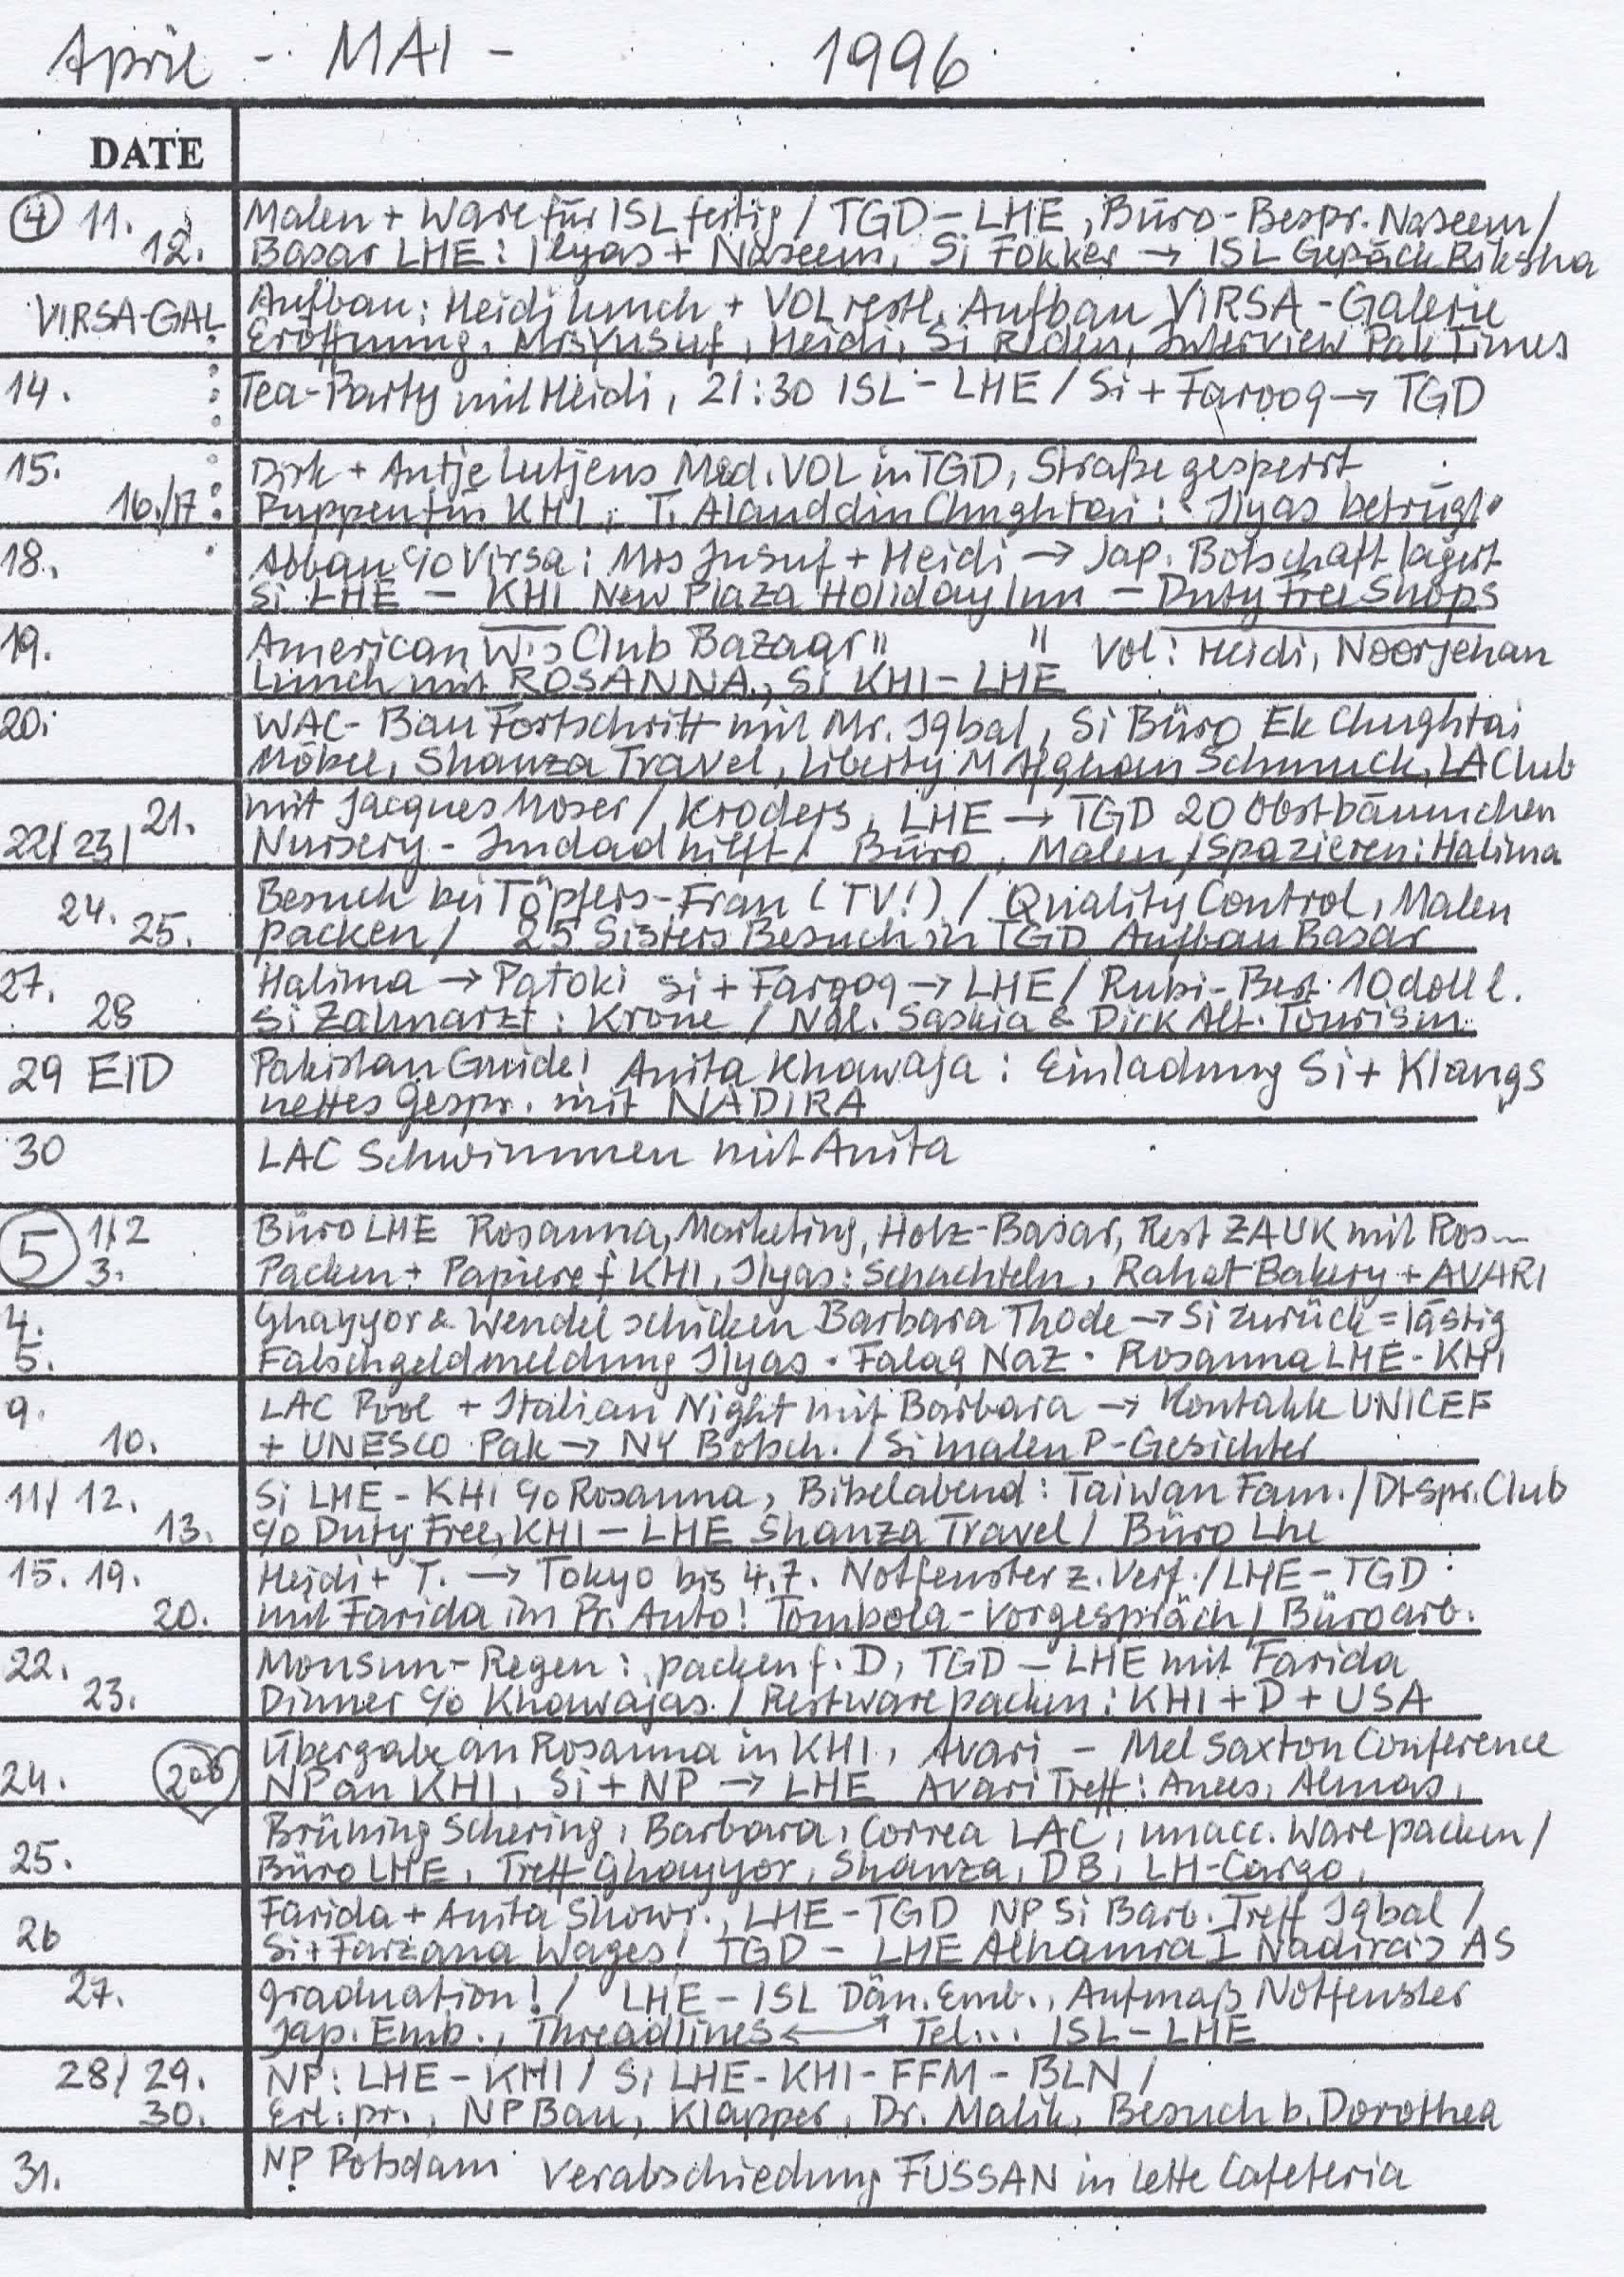 April - MAI - 1996
DATE
④ 11. Malen + Ware für ISL fertig / TGD – LHE, Büro-Bespr. Naseem /
12. Basar LHE: Ilyas + Naseem, Si Fokker → ISL Gepäck Riksha
VIRSA-GAL Aufbau: Heidi lunch + VOL restl. Aufbau VIRSA-Galerie
Eröffnung, Mrs Yusuf, Heidi, Si Reden, Interview Pak Times
14. Tea-Party mit Heidi, 21:30 ISL – LHE / Si + Farooq → TGD
15. Dirk + Antje Lutjens Med. VOL in TGD, Straße gesperrt
16./17: Puppen für KHI, T. Alauddin Chughtai: Ilyas betrügt
18. Abbau c/o Virsa: Mrs Jusuf + Heidi → Jap. Botschaft lagert
Si LHE – KHI New Plaza Holiday Inn – Duty Free Shops
19. American W's Club Bazaar " " Vol: Heidi, Noorjehan
Lunch mit ROSANNA, Si KHI – LHE
20. WAC-Bau Fortschritt mit Mr. Iqbal, Si Büro Ek Chughtai
Möbel, Shanza Travel, Liberty M Afghan Schmuck, LA Club
21. mit Jacques Moser / Kroders, LHE → TGD 20 Obstbäumchen
22/23/ Nursery - Imdad hilft / Büro, Malen, Spazieren: Halima
24. Besuch bei Töpfers-Frau (TV!) / Quality Control, Malen
25. packen / 25 Sisters Besuch in TGD Aufbau Basar
27. Halima → Patoki Si + Farooq → LHE / Rubi-Best. 10 doll l.
28 Si Zahnarzt: Krone / Ndl. Saskia & Dirk Alt. Tourism
29 EID Pakistan Guide! Anita Khawaja: Einladung Si + Klangs
nettes Gespr. mit NADIRA
30 LAC Schwimmen mit Anita
⑤ 1/2 Büro LHE Rosanna, Marketing, Holz-Basar, Rest ZAUK mit Ros
3. Packen + Papiere f KHI, Ilyas: Schachteln, Rahat Bakery + AVARI
4. Ghayyor & Wendel schicken Barbara Thode → Si zurück = lästig
5. Falschgeldmeldung Ilyas · Falaq Naz · Rosanna LHE - KHI
9. LAC Pool + Italian Night mit Barbara → Kontakte UNICEF
10. + UNESCO Pak → NY Botsch. / Si malen P-Gesichter
11/ 12. Si LHE - KHI c/o Rosanna, Bibelabend: Taiwan Fam. / Dt. Spr. Club
13. c/o Duty Free, KHI – LHE Shanza Travel / Büro Lhe
15. 19. Heidi + T. → Tokyo bis 4.7. Notfenster z. Verf. / LHE – TGD
20. mit Farida im Pr. Auto! Tombola-Vorgespräch / Büroarb.
22. Monsun-Regen: packen f. D, TGD – LHE mit Farida
23. Dinner c/o Khawajas. / Restware packen: KHI + D + USA
Übergabe an Rosanna in KHI, Avari – Mel Saxton Conference
24. NP an KHI, Si + NP → LHE Avari Treff: Anees, Almas,
Brüning Schering, Barbara, Correa LAC, unacc. Ware packen /
25. Büro LHE, Treff Ghayyor, Shanza, DB, LH-Cargo,
Farida + Anita Showr., LHE – TGD NP Si Barb. Treff Iqbal /
26 Si + Farzana Wages! TGD – LHE Alhamra I Nadira's AS
27. graduation! / LHE – ISL Dän. Emb., Aufmaß Notfenster
Jap. Emb., Threadlines ↔ Tel... ISL – LHE
28/ 29. NP: LHE – KHI / Si LHE - KHI - FFM - BLN /
30. Erl. pr., NP Bau, Klapper, Dr. Malik, Besuch b. Dorothea
31. NP Potsdam Verabschiedung FUSSAN in Lette Cafeteria